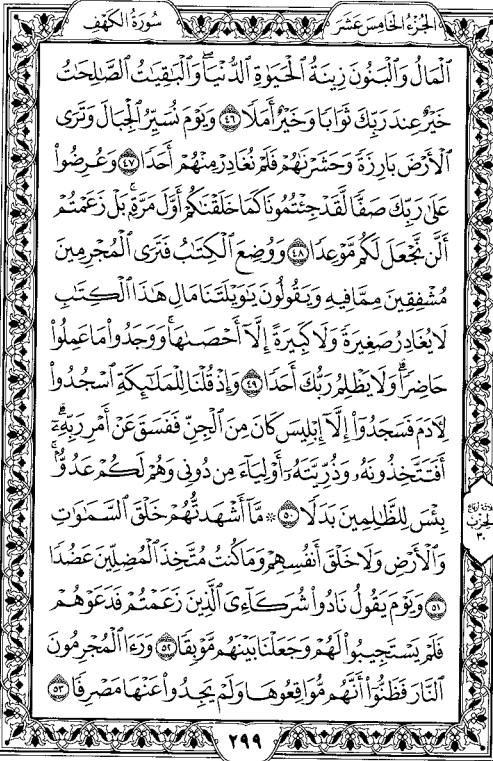 الجُزْءُ الخَامِسَ عَشَرَ
سُورَةُ الكَهْفِ
ٱلْمَالُ وَٱلْبَنُونَ زِينَةُ ٱلْحَيَوٰةِ ٱلدُّنْيَاۖ وَٱلْبَٰقِيَٰتُ ٱلصَّٰلِحَٰتُ
خَيْرٌ عِندَ رَبِّكَ ثَوَابًا وَخَيْرٌ أَمَلًا ٤٦ وَيَوْمَ نُسَيِّرُ ٱلْجِبَالَ وَتَرَى
ٱلْأَرْضَ بَارِزَةً وَحَشَرْنَٰهُمْ فَلَمْ نُغَادِرْ مِنْهُمْ أَحَدًا ٤٧ وَعُرِضُوا۟
عَلَىٰ رَبِّكَ صَفًّا لَّقَدْ جِئْتُمُونَا كَمَا خَلَقْنَٰكُمْ أَوَّلَ مَرَّةٍۭۚ بَلْ زَعَمْتُمْ
أَلَّن نَّجْعَلَ لَكُم مَّوْعِدًا ٤٨ وَوُضِعَ ٱلْكِتَٰبُ فَتَرَى ٱلْمُجْرِمِينَ
مُشْفِقِينَ مِمَّا فِيهِ وَيَقُولُونَ يَٰوَيْلَتَنَا مَالِ هَٰذَا ٱلْكِتَٰبِ
لَا يُغَادِرُ صَغِيرَةً وَلَا كَبِيرَةً إِلَّآ أَحْصَىٰهَاۚ وَوَجَدُوا۟ مَا عَمِلُوا۟
حَاضِرًاۗ وَلَا يَظْلِمُ رَبُّكَ أَحَدًا ٤٩ وَإِذْ قُلْنَا لِلْمَلَٰٓئِكَةِ ٱسْجُدُوا۟
لِأٓدَمَ فَسَجَدُوٓا۟ إِلَّآ إِبْلِيسَ كَانَ مِنَ ٱلْجِنِّ فَفَسَقَ عَنْ أَمْرِ رَبِّهِۦٓۗ
أَفَتَتَّخِذُونَهُۥ وَذُرِّيَّتَهُۥٓ أَوْلِيَآءَ مِن دُونِى وَهُمْ لَكُمْ عَدُوٌّۢۚ
بِئْسَ لِلظَّٰلِمِينَ بَدَلًا ٥٠ ۞ مَّآ أَشْهَدتُّهُمْ خَلْقَ ٱلسَّمَٰوَٰتِ
وَٱلْأَرْضِ وَلَا خَلْقَ أَنفُسِهِمْ وَمَا كُنتُ مُتَّخِذَ ٱلْمُضِلِّينَ عَضُدًا
٥١ وَيَوْمَ يَقُولُ نَادُوا۟ شُرَكَآءِىَ ٱلَّذِينَ زَعَمْتُمْ فَدَعَوْهُمْ
فَلَمْ يَسْتَجِيبُوا۟ لَهُمْ وَجَعَلْنَا بَيْنَهُم مَّوْبِقًا ٥٢ وَرَءَا ٱلْمُجْرِمُونَ
ٱلنَّارَ فَظَنُّوٓا۟ أَنَّهُم مُّوَاقِعُوهَا وَلَمْ يَجِدُوا۟ عَنْهَا مَصْرِفًا ٥٣
ثلاثة أرباع
الحزب
٣٠
٢٩٩